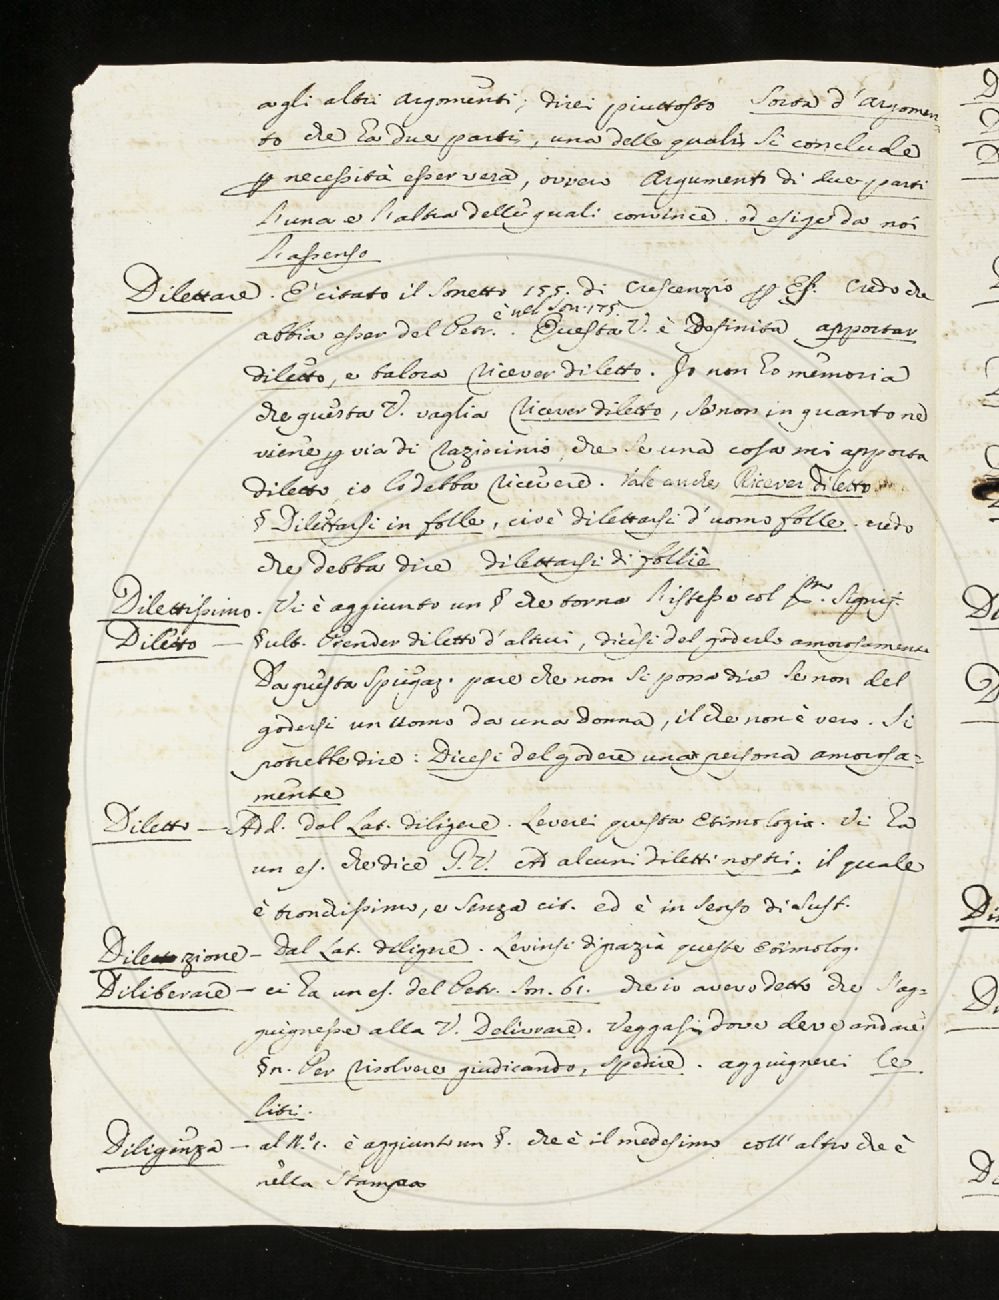 agli altri Argomenti; direi piuttosto Sorta d'Argomen-
to che ha due parti, una delle quali si conclude
ꝑ necessità esser vera, ovvero Argumenti di due parti
l'una e l'altra delle quali convince ed esige da noi
l'assenso
Dilettare. E' citato il Sonetto 155. di Crescenzio ꝑ Es. Credo che
è nel Son. 175.
abbia esser del Petr. . Questa V. è definita apportar
diletto, e talora ricever diletto. Io non ho memoria
che questa V. vaglia ricever diletto, se non in quanto ne
viene ꝑ via di raziocinio, che se una cosa mi apporta
diletto, io lo debba ricevere. Vale anche Ricever diletto
§ Dilettarsi in folle, cioè dilettarsi d'uomo folle. credo
che debba dire dilettarsi di follie
Dilettissimo. Vi è aggiunto un § che torna l'istesso col signif.
Diletto — § ult. Prender diletto d'altrui, dicesi del goderlo amorosamente
Da questa spiegaz. pare che non si possa dire se non del
godersi un uomo da una donna, il che non è vero. Si
potrebbe dire: Dicesi del godere una persona amorosa-
mente
Diletto — Add. dal Lat. diligere. Leverei questa Etimologia. Vi ha
un es. che dice G.V. ed alcuni diletti nostri; il quale
è tronchissimo, e senza cit. ed è in senso di Sust.
Dilezione — Dal Lat. diligere. Levinsi di grazia queste Etimolog.
Diliberare — ci ha un es. del Petr. Son. 61. che io avevo detto che s'ag-
giugnesse alla V. Delivrare. Veggasi dove deve andare
§n. Per risolvere giudicando, spedire. aggiugnerei le
liti.
Diligenza — al N.° 1. è aggiunto un §. che è il medesimo coll'altro che è
nella Stampa